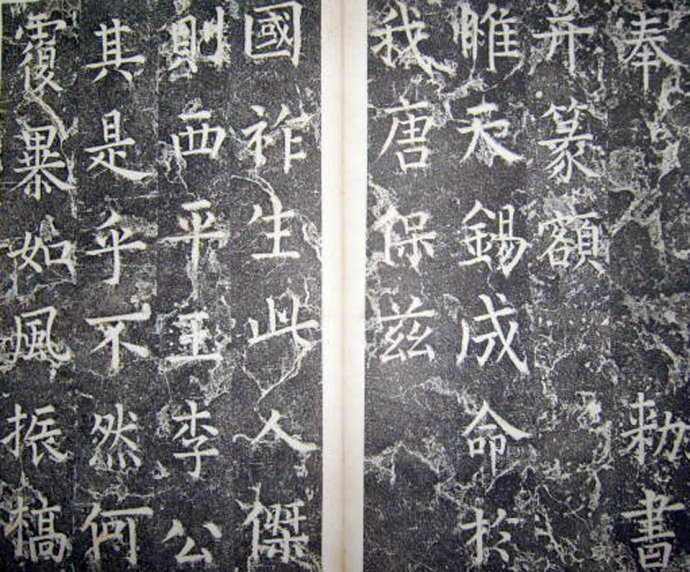 奉敕書
并篆額
唯天錫成命於
我唐保茲
國祚生此人傑
則西平王李公
其是乎不然何
覆暴如風振槁